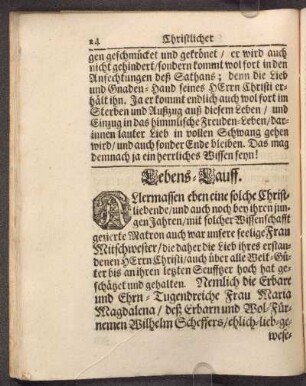 24 Christlicher
gen geschmücket und gekrönet / er wird auch
nicht gehindert / sondern kommt wol fort in den
Anfechtungen deß Sathans; denn die Lieb
und Gnaden-Hand seines HErrn Christi er-
hält ihn. Ja er kommt endlich auch wol fort im
Sterben und Außzug auß diesem Leben / und
Einzug in das himmlische Freuden-Leben / dar-
innen lauter Lieb in vollen Schwang gehen
wird / und auch sonder Ende bleiben. Das mag
demnach ja ein herrliches Wissen seyn!
Lebens-Lauff.
ALlermassen eben eine solche Christ-
liebende / und auch noch bey ihren jun-
gen Jahren / mit solcher Wissenschafft
gezierte Matron auch war unsere seelige Frau
Mitschwester / die daher die Lieb ihres erstan-
denen HErrn Christi / auch über alle Welt-Gü-
ter bis an ihren letzten Seufftzer hoch hat ge-
schätzet und gehalten. Nemlich die Erbare
und Ehrn-Tugendreiche Frau Maria
Magdalena / deß Erbarn und Wol-Für-
nemen Wilhelm Scheffers / ehlich-lieb-ge-
wese-